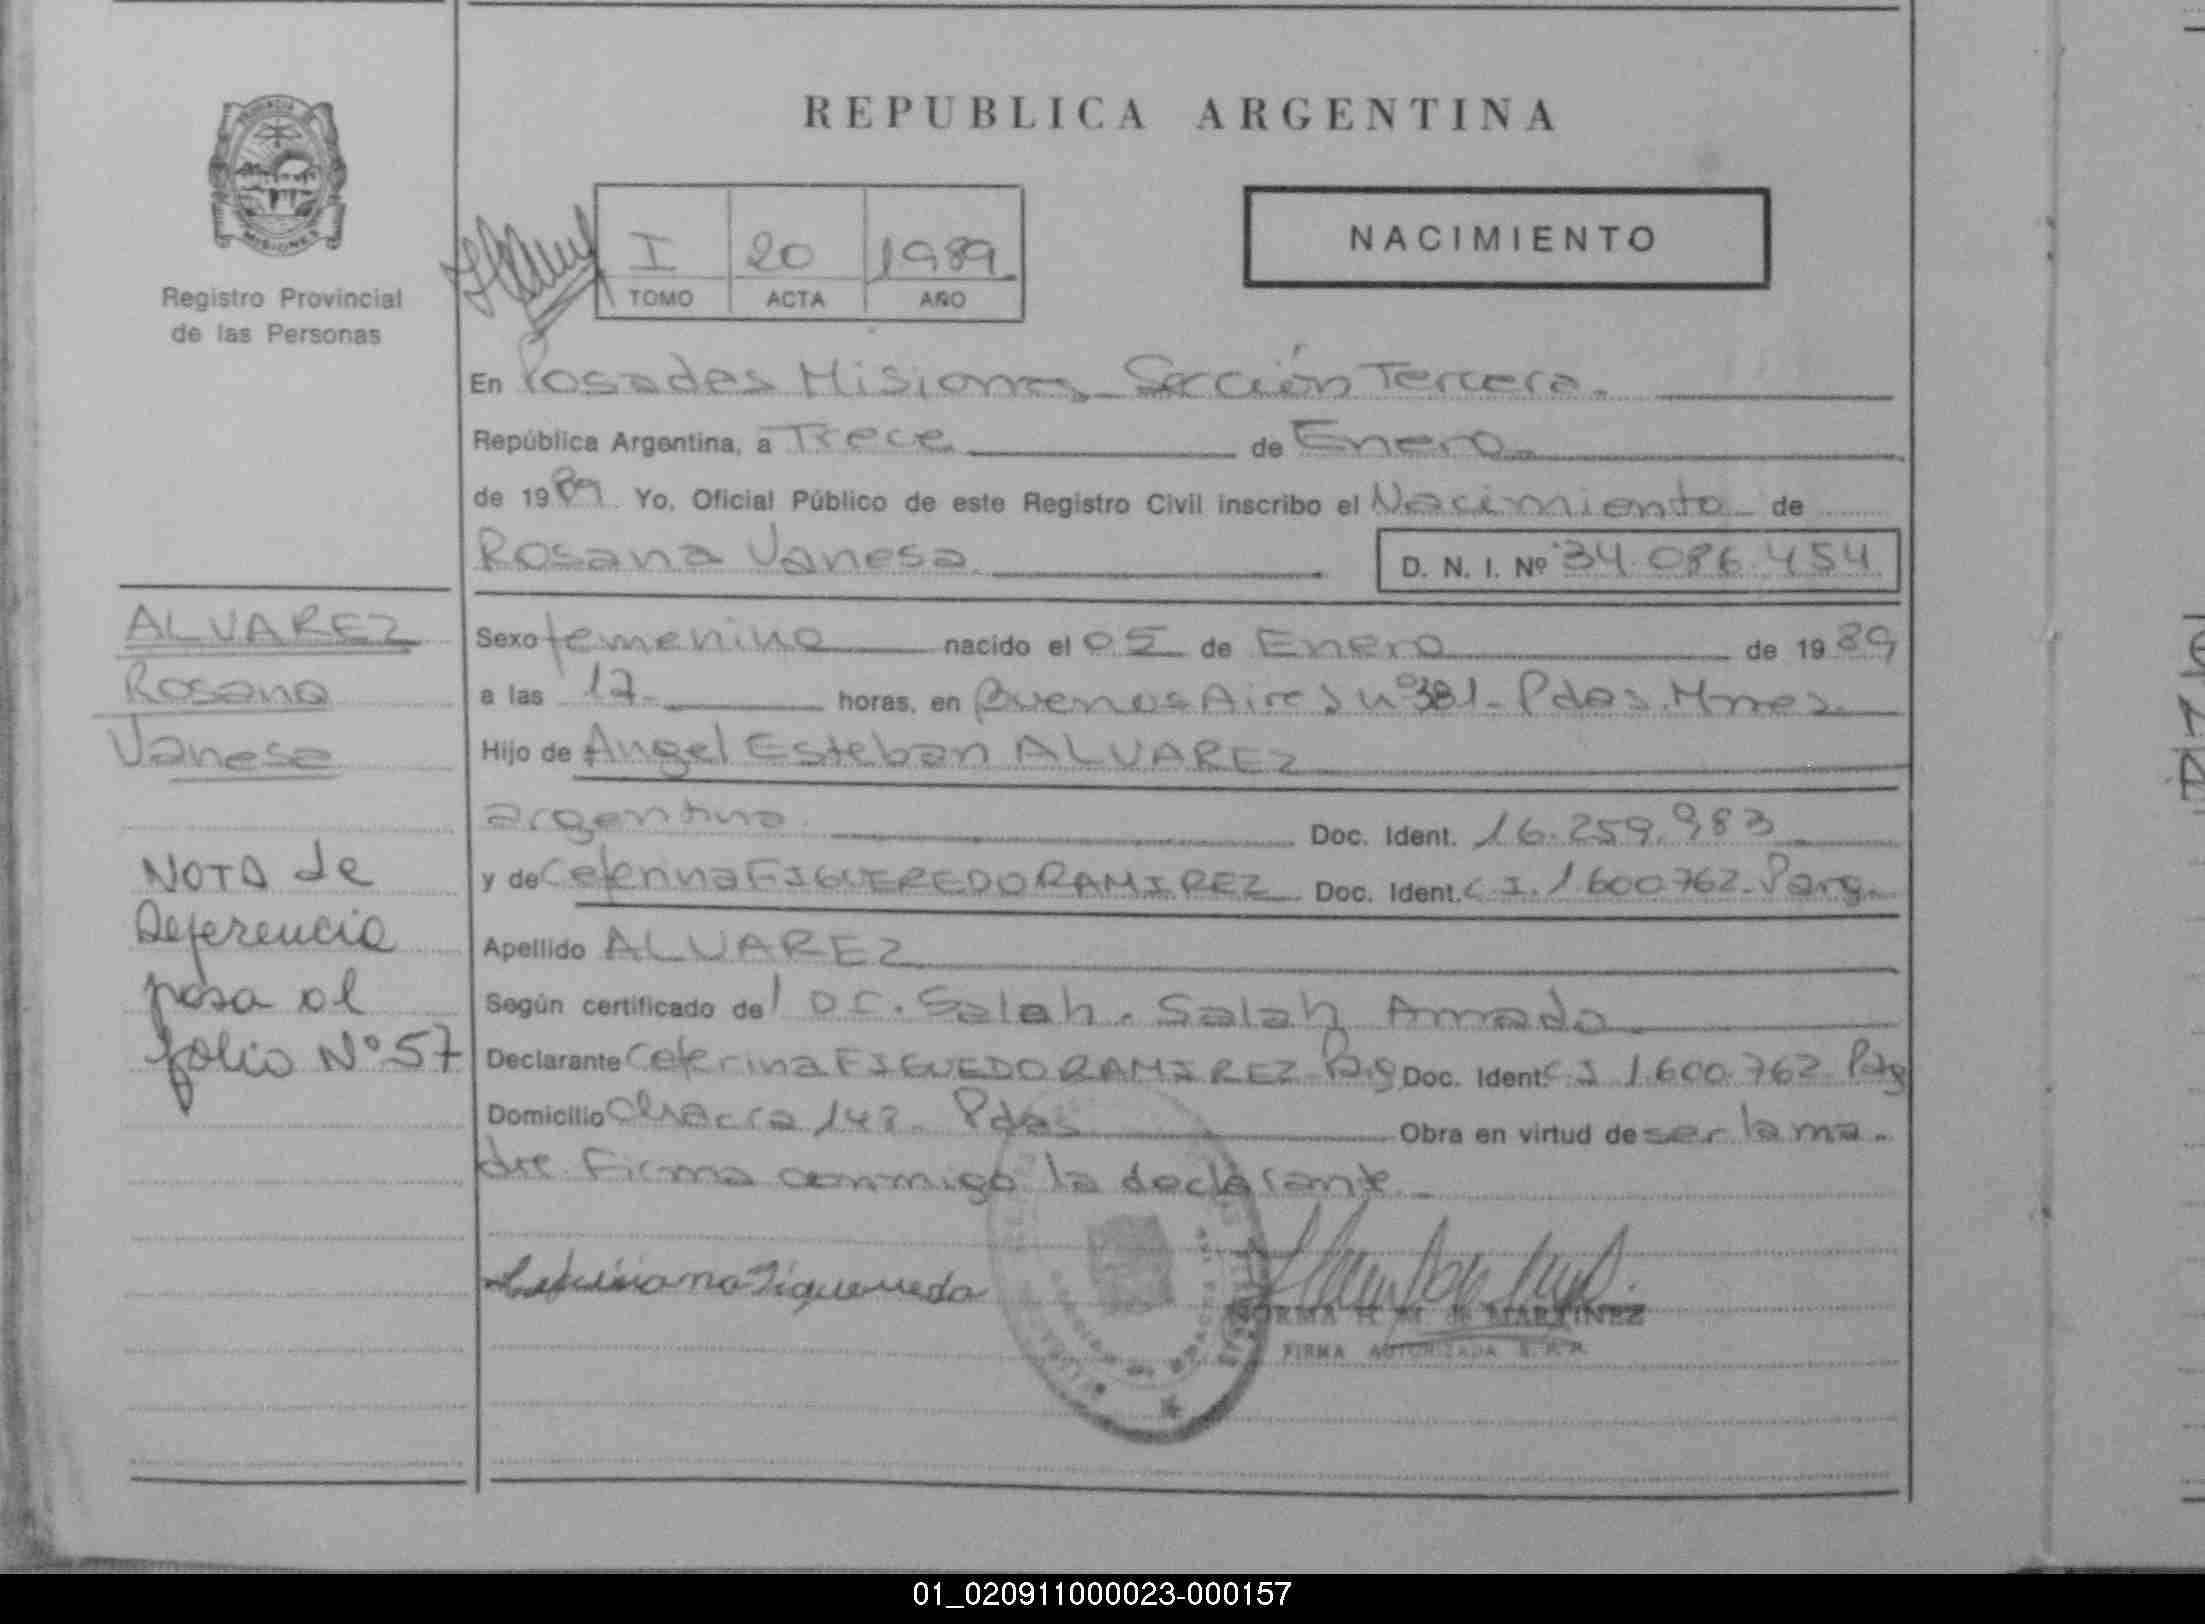 REPUBLICA ARGENTINA
MISIONES
Registro Provincial
de las Personas
I 20 1989
TOMO ACTA AÑO
NACIMIENTO
En Posadas Misiones Sección Tercera.
República Argentina, a Trece de Enero
de 1989. Yo, Oficial Público de este Registro Civil inscribo el Nacimiento de
Rosana Vanesa
D. N. I. Nº 34.086.454
ALVAREZ
Rosana
Vanesa
Sexo femenino nacido el 05 de Enero de 1989
a las 17 horas, en Buenos Aires nº381- Pdas. Mnes
Hijo de Angel Esteban ALVAREZ
argentino Doc. Ident. 16.259.983
y de Ceferina FIGUEREDO RAMIREZ Doc. Ident. C.I. 1.600.762 Parg.
Apellido ALVAREZ
Según certificado del Dr. Salah. Salah Amado
Declarante Ceferina FIGUEDO RAMIREZ Parg Doc. Ident C I 1.600.762 Parg
Domicilio Chacra 142. Pdas Obra en virtud de ser la ma-
dre Firma conmigo la declarante.
NOTA de
Referencia
pasa al
folio Nº 57
Figueredo
NORMA H. M. de MARTINEZ
FIRMA AUTORIZADA
01_020911000023-000157